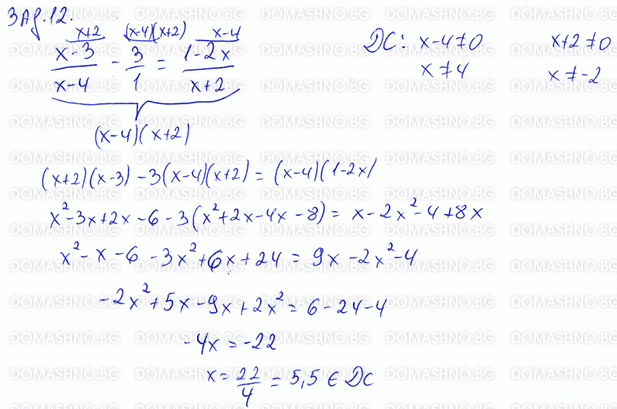 Зад.12.
x+2 (x-4)(x+2) x-4
(x-3)/(x-4) - 3/1 = (1-2x)/(x+2)
ДС: x-4≠0 x+2≠0
x≠4 x≠-2
(x-4)(x+2)
(x+2)(x-3) - 3(x-4)(x+2) = (x-4)(1-2x)
x²-3x+2x-6-3(x²+2x-4x-8) = x-2x²-4+8x
x²-x-6-3x²+6x+24 = 9x-2x²-4
-2x²+5x-9x+2x² = 6-24-4
-4x = -22
x = 22/4 = 5,5 ∈ ДС
DOMASHNO.BG